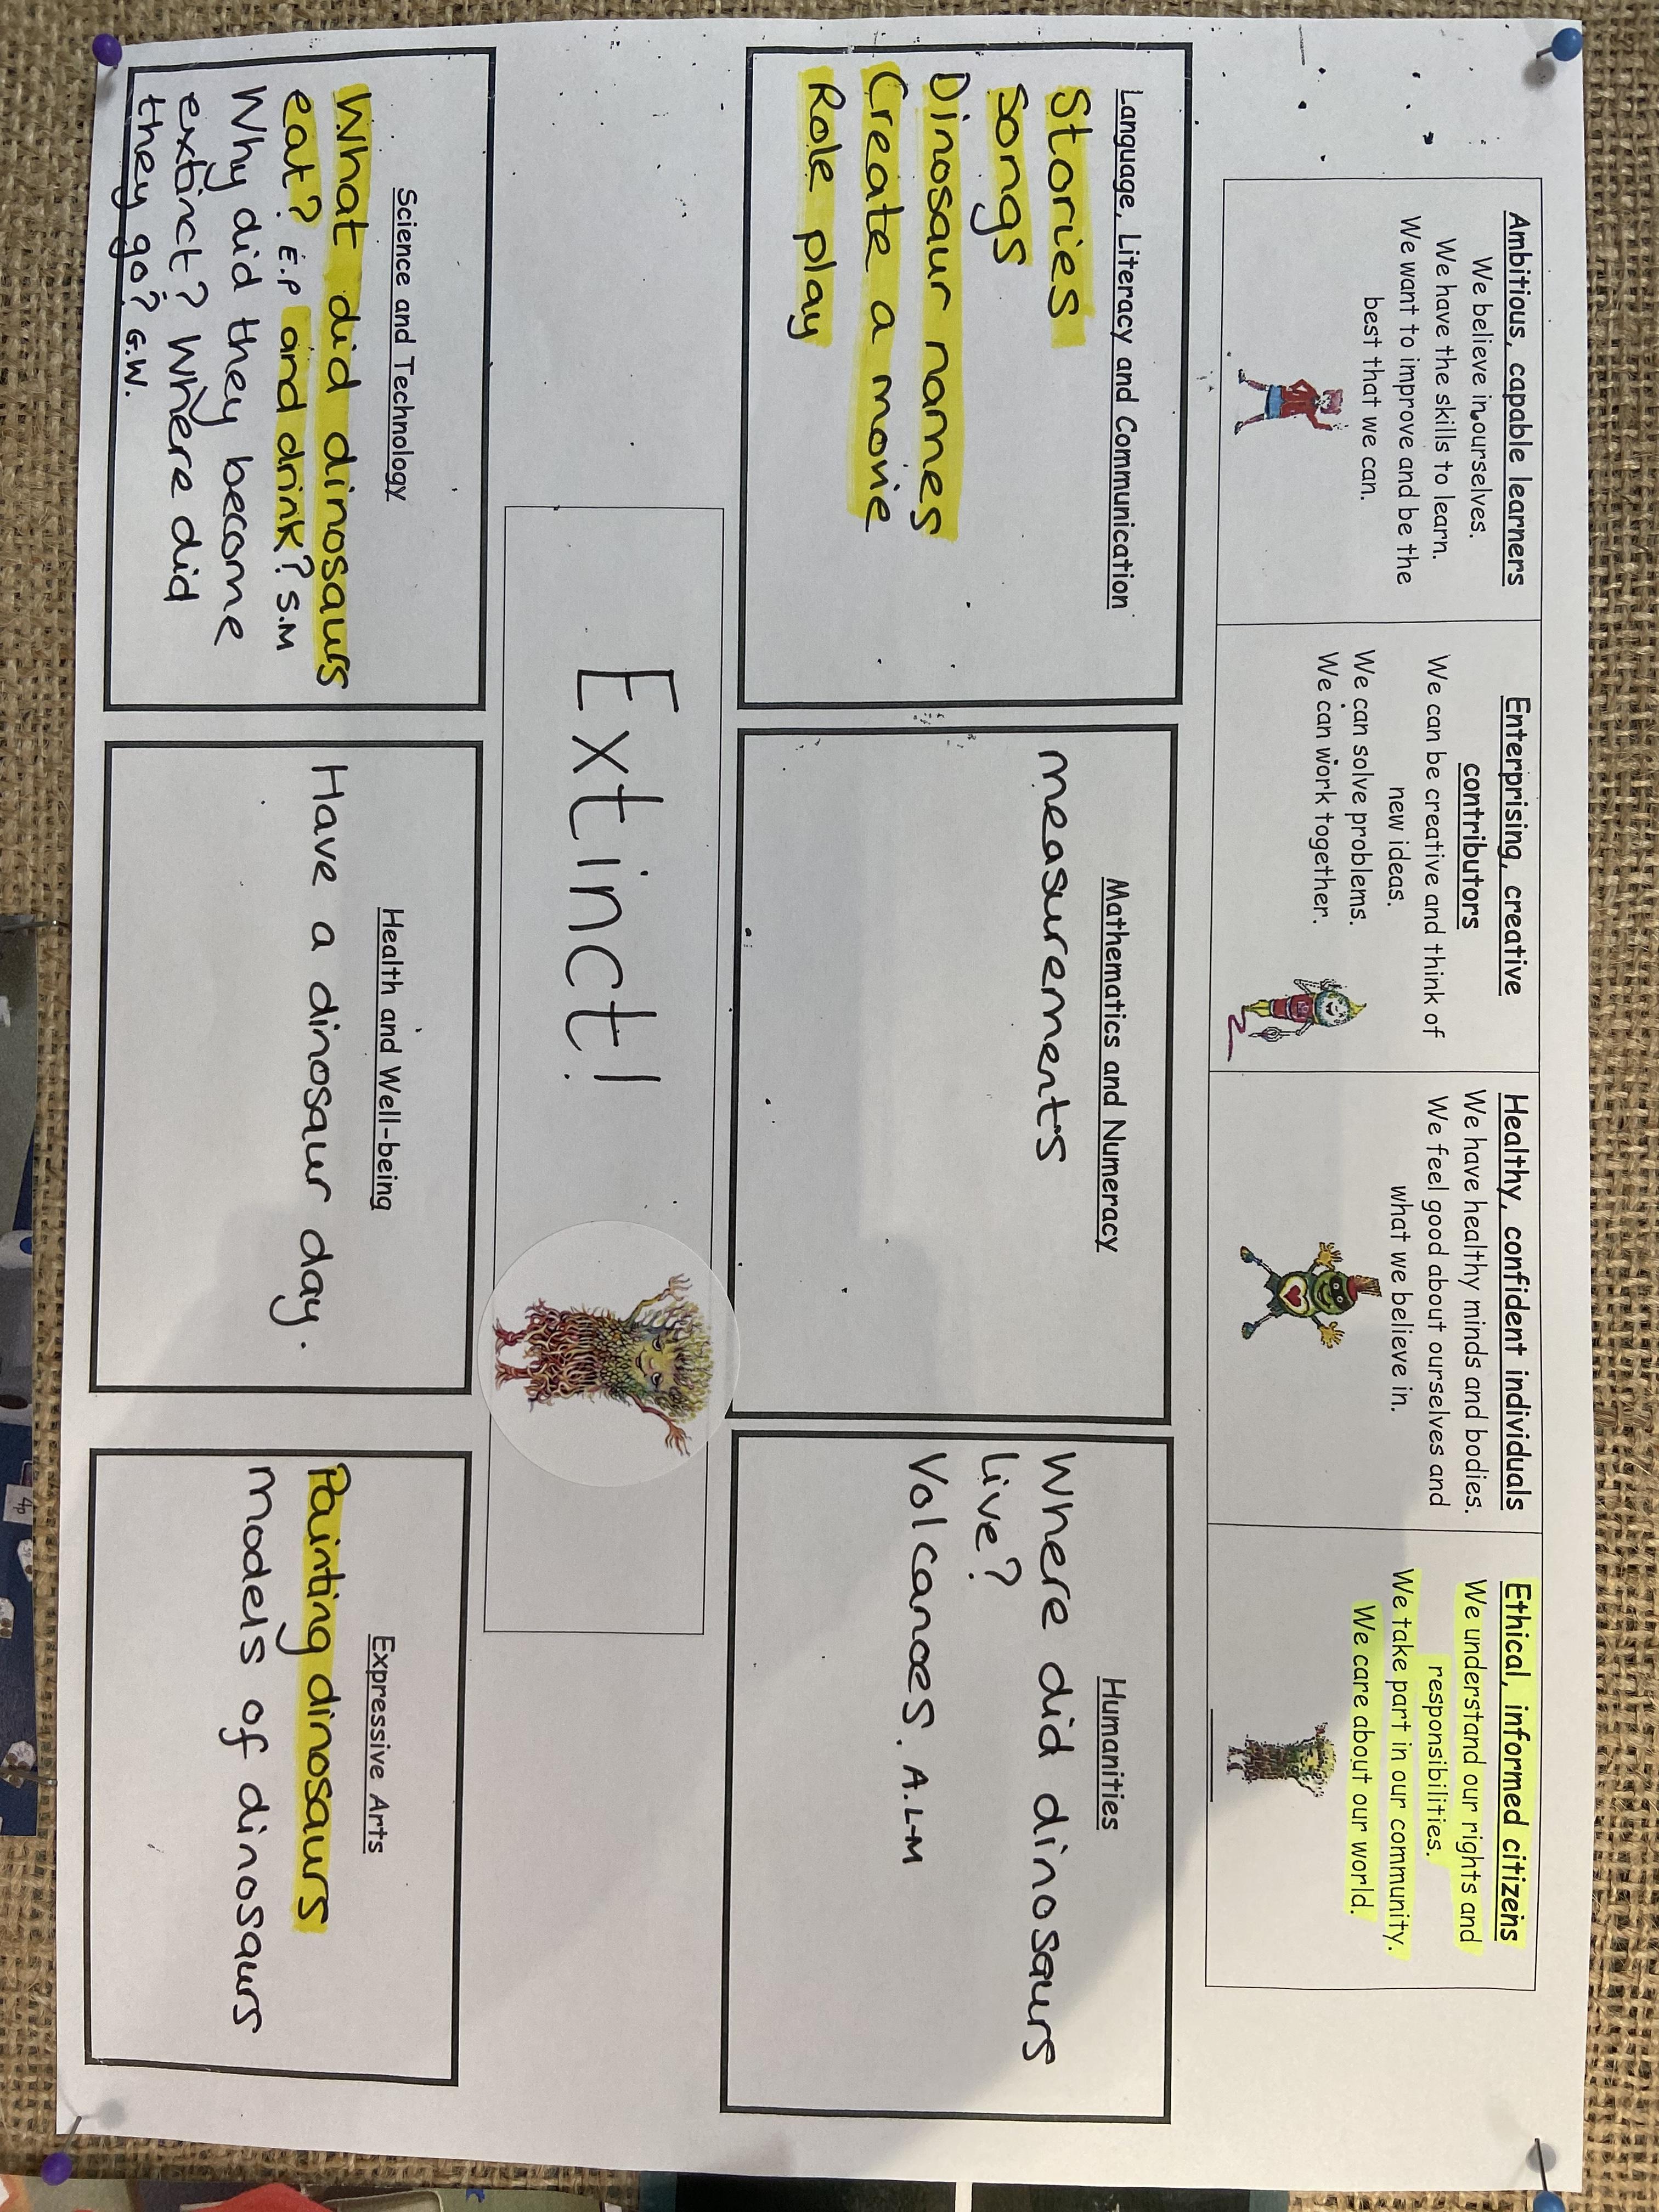 Ambitious, capable learners
We believe in ourselves.
We have the skills to learn.
We want to improve and be the
best that we can.
Enterprising, creative
contributors
We can be creative and think of
new ideas.
We can solve problems.
We can work together.
Healthy, confident individuals
We have healthy minds and bodies.
We feel good about ourselves and
what we believe in.
Ethical, informed citizens
We understand our rights and
responsibilities.
We take part in our community.
We care about our world.
Language, Literacy and Communication
Stories
songs
Dinosaur names
Create a movie
Role play
Mathematics and Numeracy
measurements
Humanities
Where did dinosaurs
live?
Volcanoes. A.L-M
Extinct!
Science and Technology
What did dinosaurs
eat? E.P and drink? S.M
Why did they become
extinct? Where did
they go? G.W.
Health and Well-being
Have a dinosaur day.
Expressive Arts
Painting dinosaurs
models of dinosaurs
4p